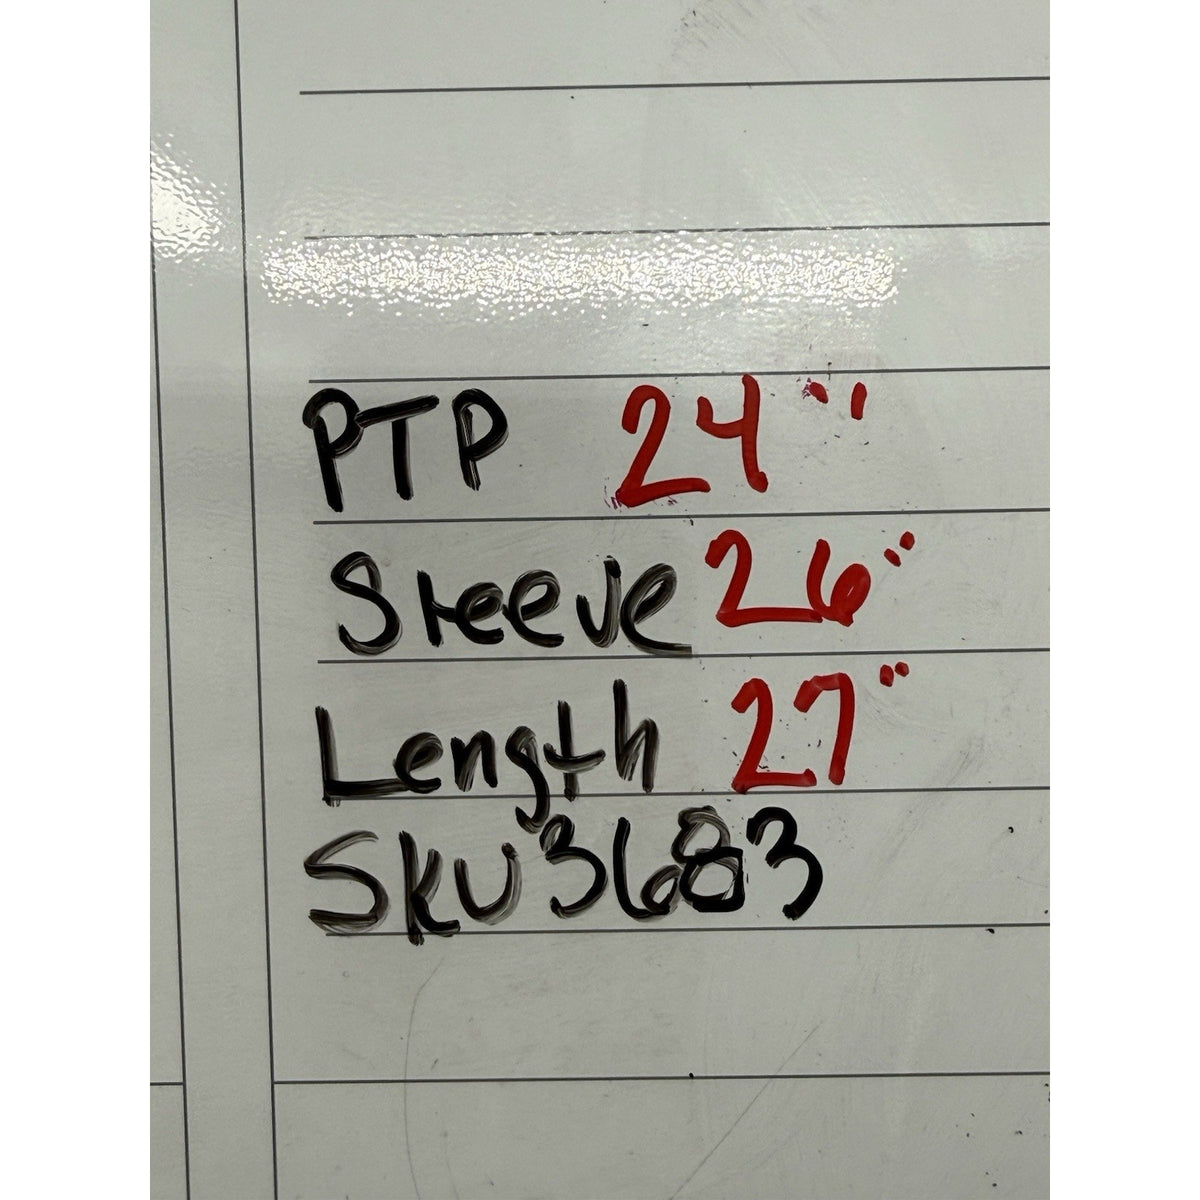 PTP 24"
Sleeve 26"
Length 27"
SKU 3683